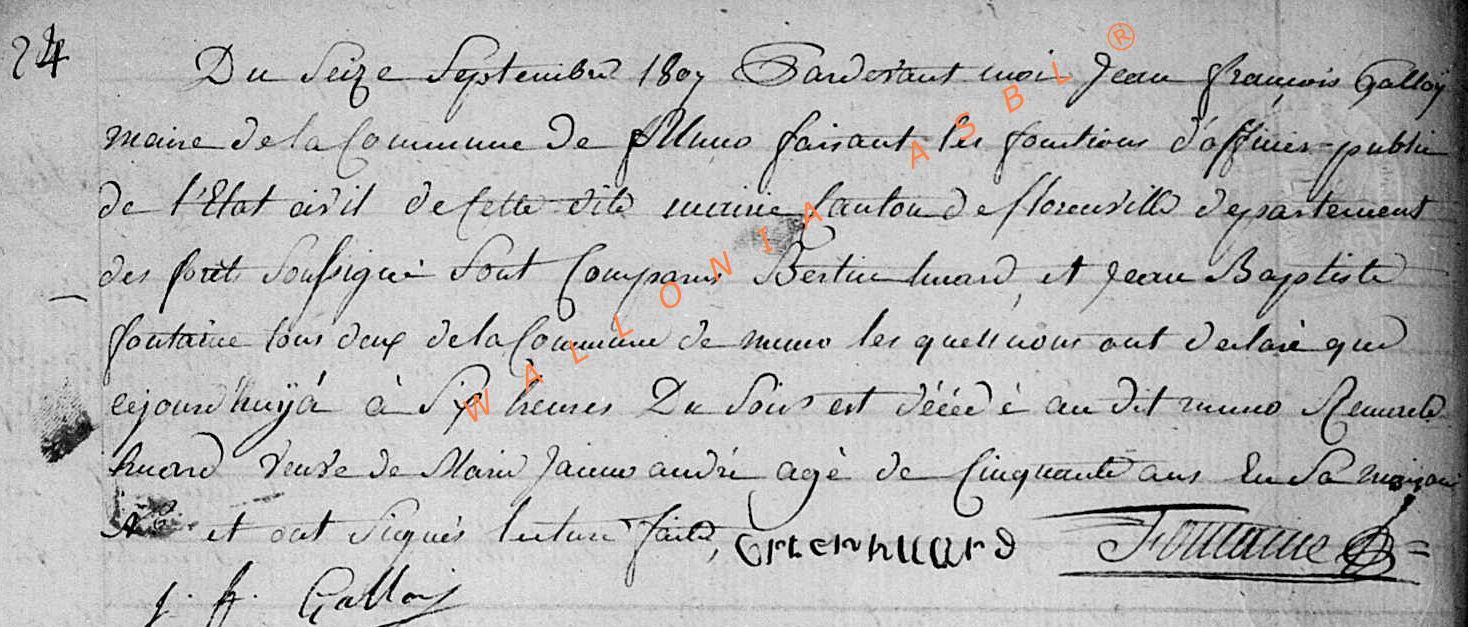 24
Du Seize Septembre 1807 Pardevant moi Jean françois Galloÿ
maire de la Commune de Muno faisant les fonctions d'officier public
de l'Etat civil de Cette dite mairie Canton de florenville departement
des forêts Soussigné Sont Comparus Bertin huard et Jean Baptiste
fontaine tous deux de la Commune de muno les quels nous ont declaré que
cejourd'huÿ à Six heures Du Soir est décédé au dit muno
huard veuve de Marie Jeanne andré agé de Cinquante ans En Sa maison
et ont Signés lecture faite, huard Fontaine
J. f. Galloij
WALLONIA ASBL ®